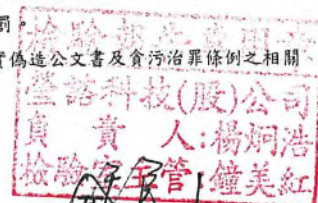 罰。
偽造公文書及貪污治罪條例之相關
檢驗報告專用章
科技(股)公司
負責人:楊炯浩
檢驗室主管:鐘美紅